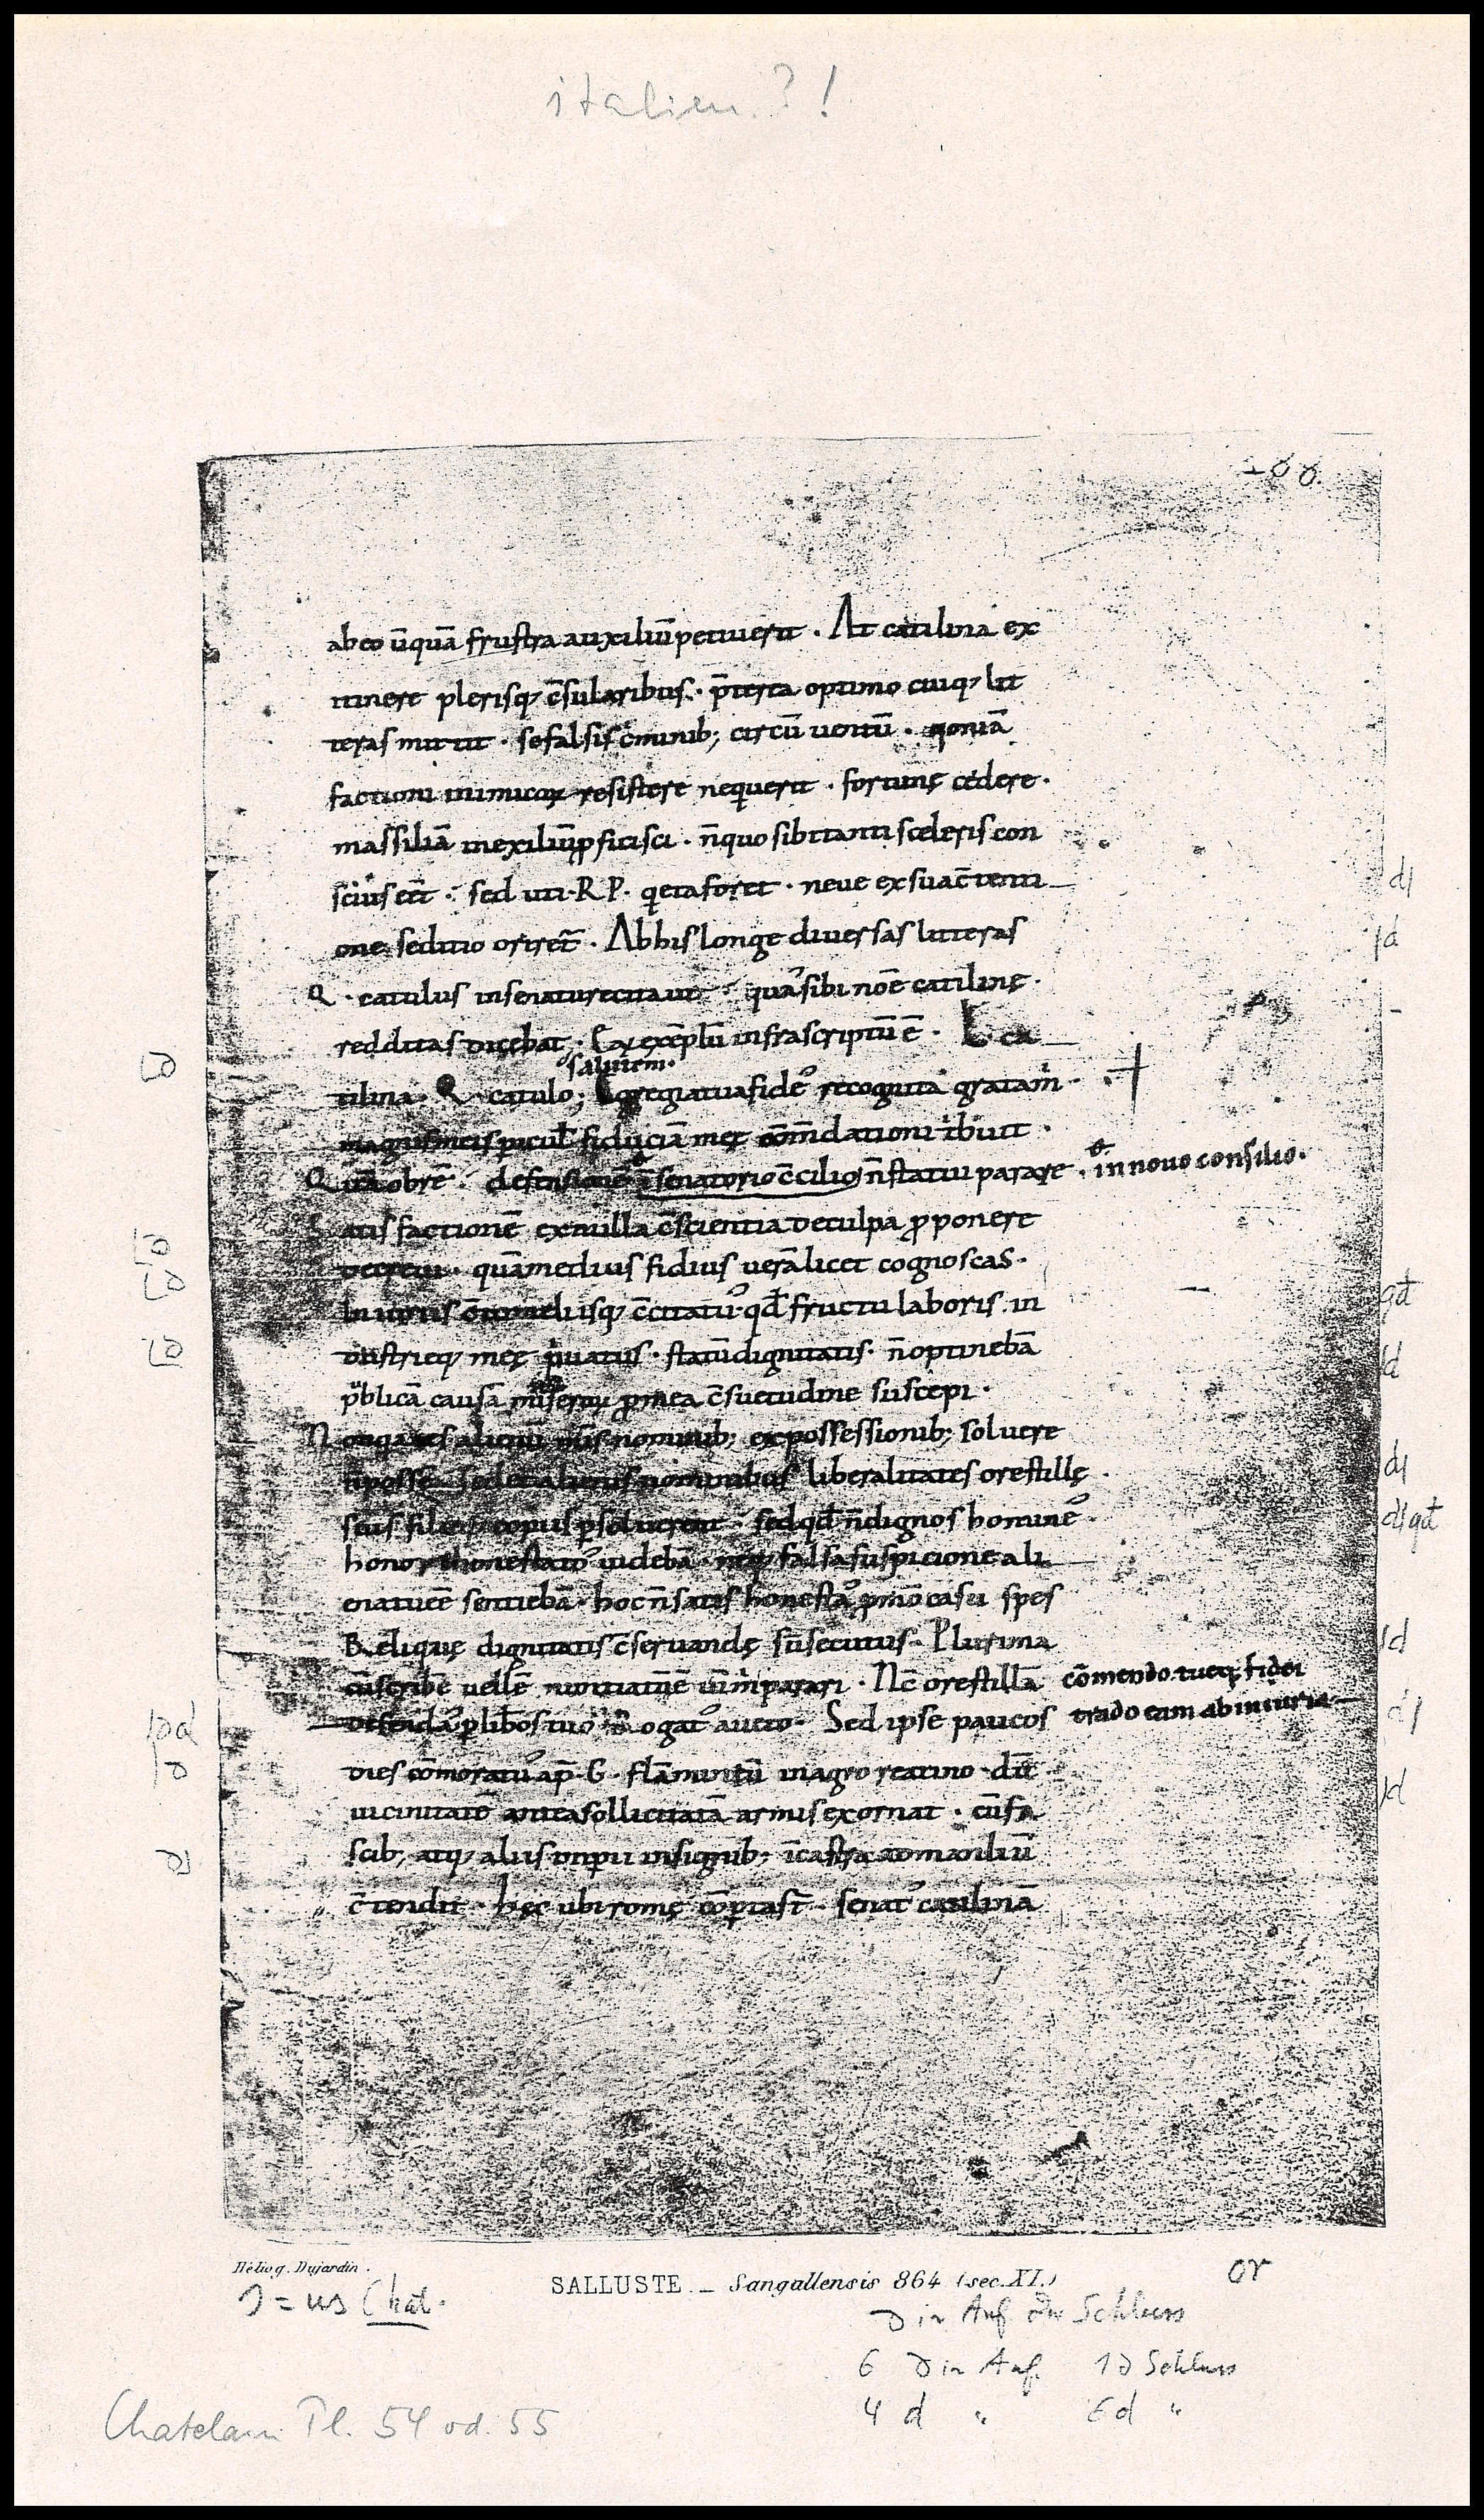 italien ? !
abeo ūquā frustra auxiliū petiuerit · At catilina ex
itinere plerisq; c̄sularibus · p̄terea optimo cuiq; lit
teras mittit · se falsis c̄minib; circū uentū · qoniā
factioni inimicoꝝ resistere nequerit · fortunę cedere ·
massiliā in exiliū ꝓficisci · n̄ quo sibi tanti sceleris con
scius eēt · sed uti · R P · q̇eta foret · neue ex sua c̄tenti
one seditio oriret̄ · Ab his longe diuersas litteras
Q · catulus in senatu recitauit · qua᾽ sibi noē catilinę ·
redditas dicebat · Eaꝝ exēplū infra scriptū ē · L ca
salutem ·
tilina · Q · catulo ; Egregia tua fide᾽ recognita gratam̄ ·
magnis meis pericul̄ fiduciā meę com̄dationi tribuit ·
Quāobrē · defensionē ī senatorio c̄cilio n̄ statui parare · in nouo consilio ·
Satisfactionē ex nulla c̄scientia de culpa ꝓponere
decreui · quā me dius fidius uerā licet cognoscas ·
Iniuriis c̄tumeliisq; c̄citatu᾽ · qđ fructu laboris in
dustrieq; meę priuatus · statū dignitatis · n̄ optinebā
publicā causā miseroꝝ ꝓ mea c̄suetudine suscepi ·
Non qa aes alienū meis nominib; ex possessionib; soluere
n̄ posse
liberalitates orestillę ·
suis filieq; copiis p̄solueret · sed qđ n̄ dignos homine᾽ ·
honore honestato᾽ uidebā · meq; falsa suspicione ali
enatū eē sentiebā · hoc n̄ satis honesta᾽ p̄ mō casu spes
Reliquę dignitatis c̄seruandę sū secutus · Plurima
cū scribē uellē nuntiatū ē uī m̄ parari · Nc̄ orestillā cōmendo tueq; fidei
trado eam ab iniuria
defenda᾽ p̄ liberos tuo᾽ rogat᾽ aueto · Sed ipse paucos
dies cōmoratu᾽ ap̄ · G · flāminiū in agro reatino · dū
uicinitatē antea sollicitatā armis exornat · cū fa
scib; atq; aliis imperii insignib; ī castra ad manliū
c̄tendit · hęc ubi romę cōperta st̄ · senat᾽ catilinā
Héliog. Dujardin.
SALLUSTE _ Sangallensis 864 (sec. XI.)
or
= us Chat.
in Anf. od. Schluss
6 ꝺ in Anf. 1 ꝺ Schluss
4 d " 6 d "
Chatelain Pl. 54 od. 55